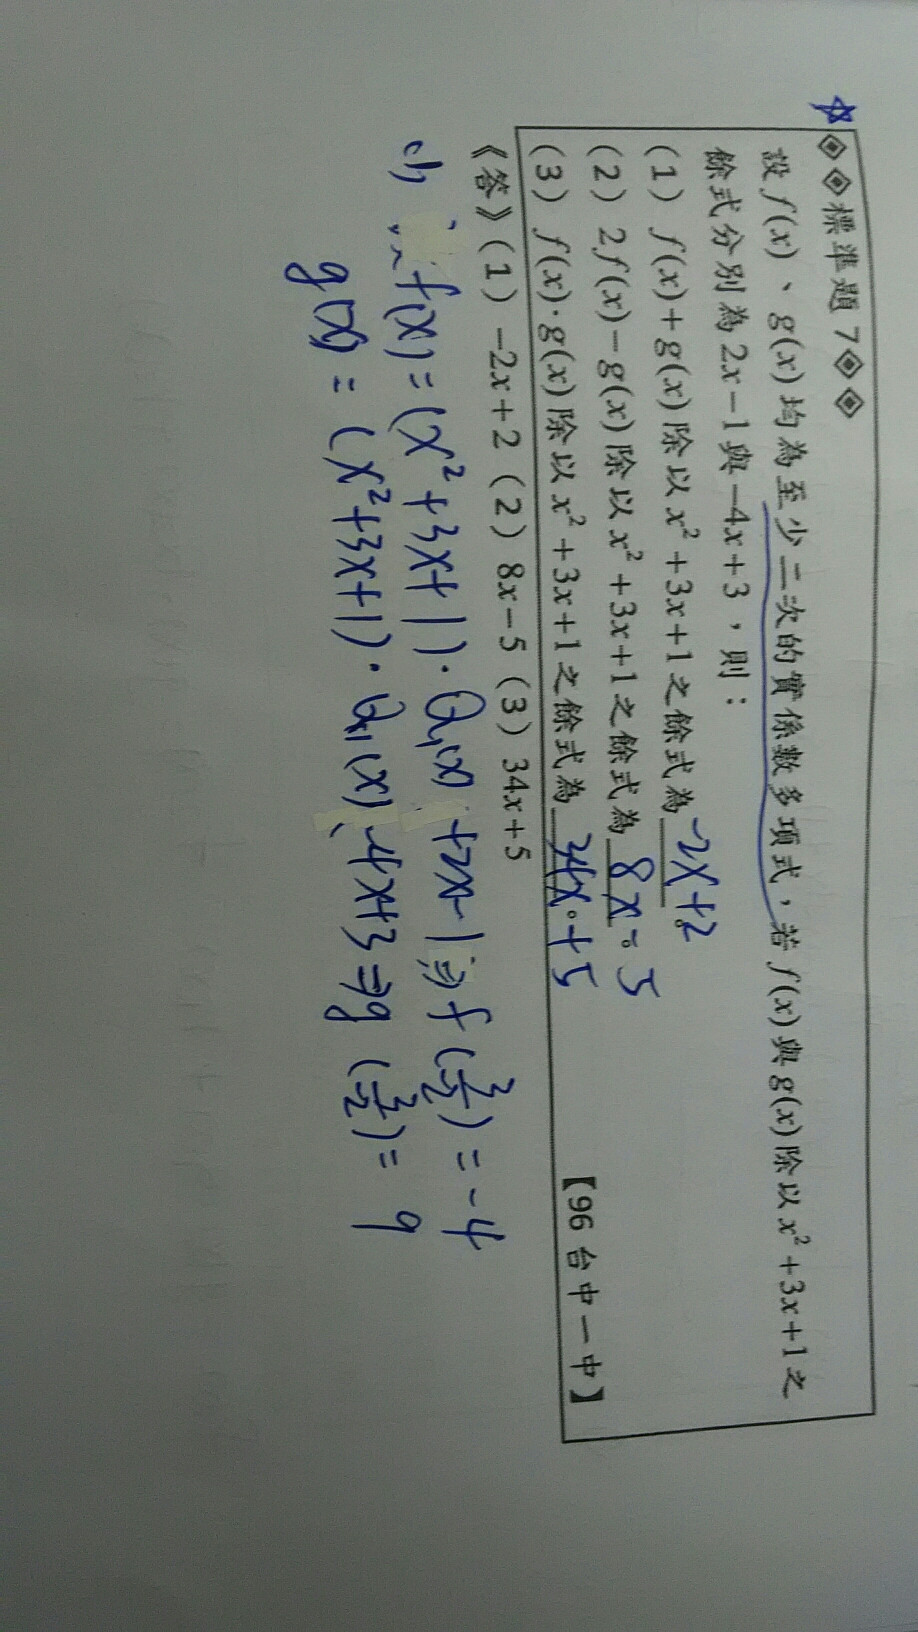 ☆◈◈標準題 7◈◈
設 f(x)、g(x) 均為至少二次的實係數多項式，若 f(x) 與 g(x) 除以 x²+3x+1 之
餘式分別為 2x−1 與 −4x+3，則：
(1) f(x)+g(x) 除以 x²+3x+1 之餘式為 -2x+2。
(2) 2f(x)−g(x) 除以 x²+3x+1 之餘式為 8x-5。
(3) f(x)·g(x) 除以 x²+3x+1 之餘式為 34x+5。 【96 台中一中】
《答》(1) −2x+2 (2) 8x−5 (3) 34x+5
(1) f(x)=(x²+3x+1)·Q₁(x)+2x-1⇒f(
g(x)=(x²+3x+1)·Q₁(x)-4x+3⇒g(